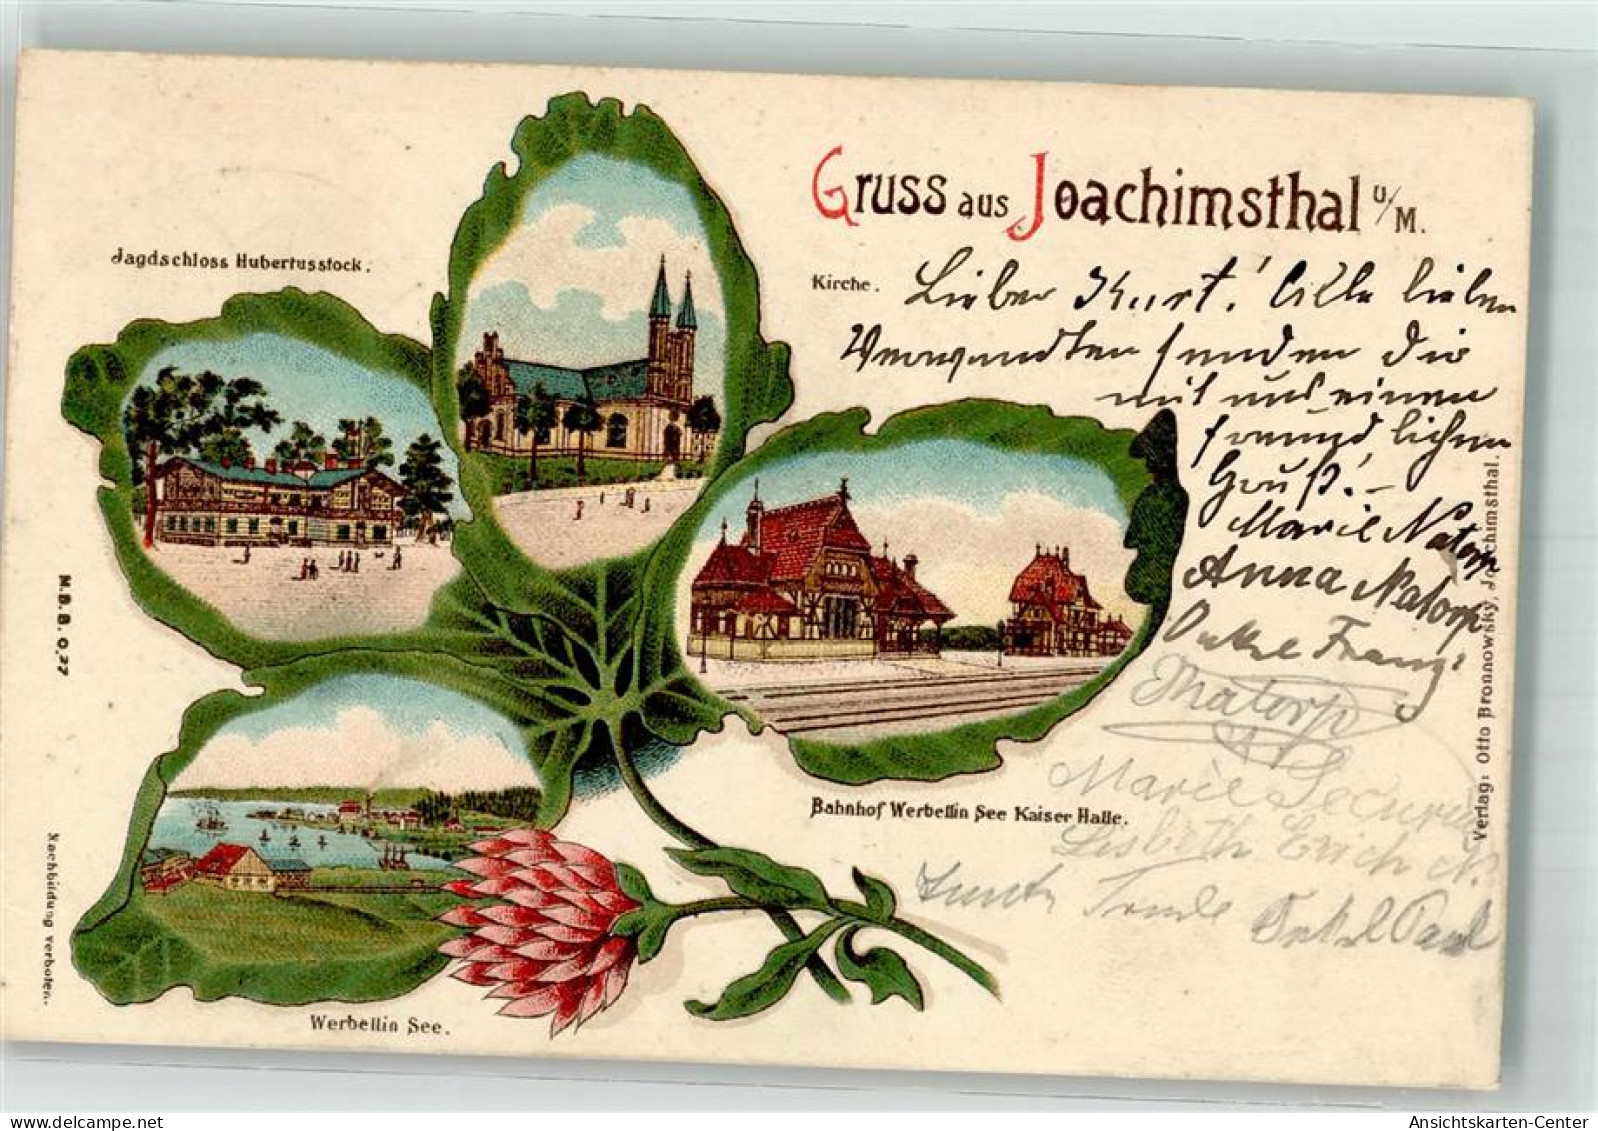 Gruss aus Joachimsthal U/M.
Jagdschloss Hubertusstock.
Kirche.
Lieber Kurt! Alle lieben
Verwandten senden dir
mit uns einen
freundlichen
Gruß! –
Marie Natorp
Anna Natorp
Onkel Franz
Natorp
Marie
Lisbeth Erich N.
Tante Trude Onkel Paul
Bahnhof Werbellin See Kaiser Halle.
Werbellin See.
M.B.B. O,27
Nachbildung verboten.
Verlag: Otto Bronnowsky, Joachimsthal.
Ansichtskarten-Center